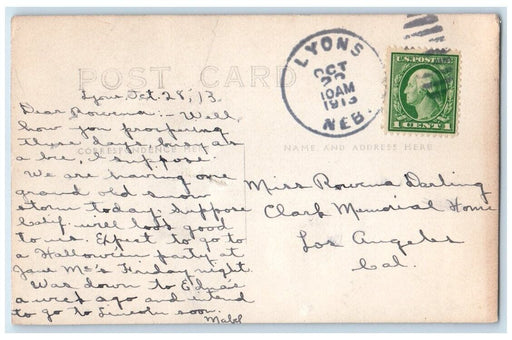 POST CARD
CORRESPONDENCE HERE
NAME AND ADDRESS HERE
LYONS
OCT
10AM
1913
NEB.
U.S. POSTAGE
1 CENT 1
Lyons, Oct. 28, '13.
Dear Rowena:- Well,
how you prospering
these days busy as
a bee, I suppose.
We are having one
grand old snow
storm today. Suppose
Calif. will look good
to us. Expect to go to
a Halloween party at
Jane Mc's Friday night.
Was down to Edna's
a week ago and intend
to go to Lincoln soon.
Mabel
Miss Rowena Darling
Clark Memorial Home
Los Angeles
Cal.